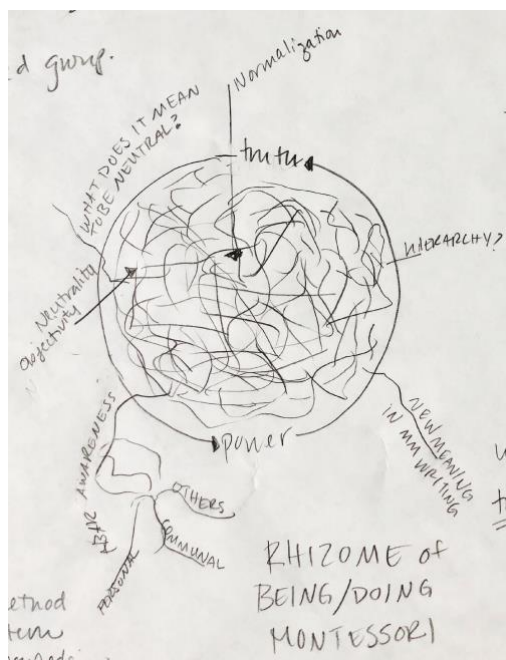 d group.
Normalization
WHAT DOES IT MEAN
TO BE NEUTRAL?
truth
HIERARCHY?
Neutrality
objectivity
power
NEW MEANING
IN MM WRITING
ABAR AWARENESS
OTHERS
COMMUNAL
PERSONAL
RHIZOME of
BEING/DOING
MONTESSORI
ethod